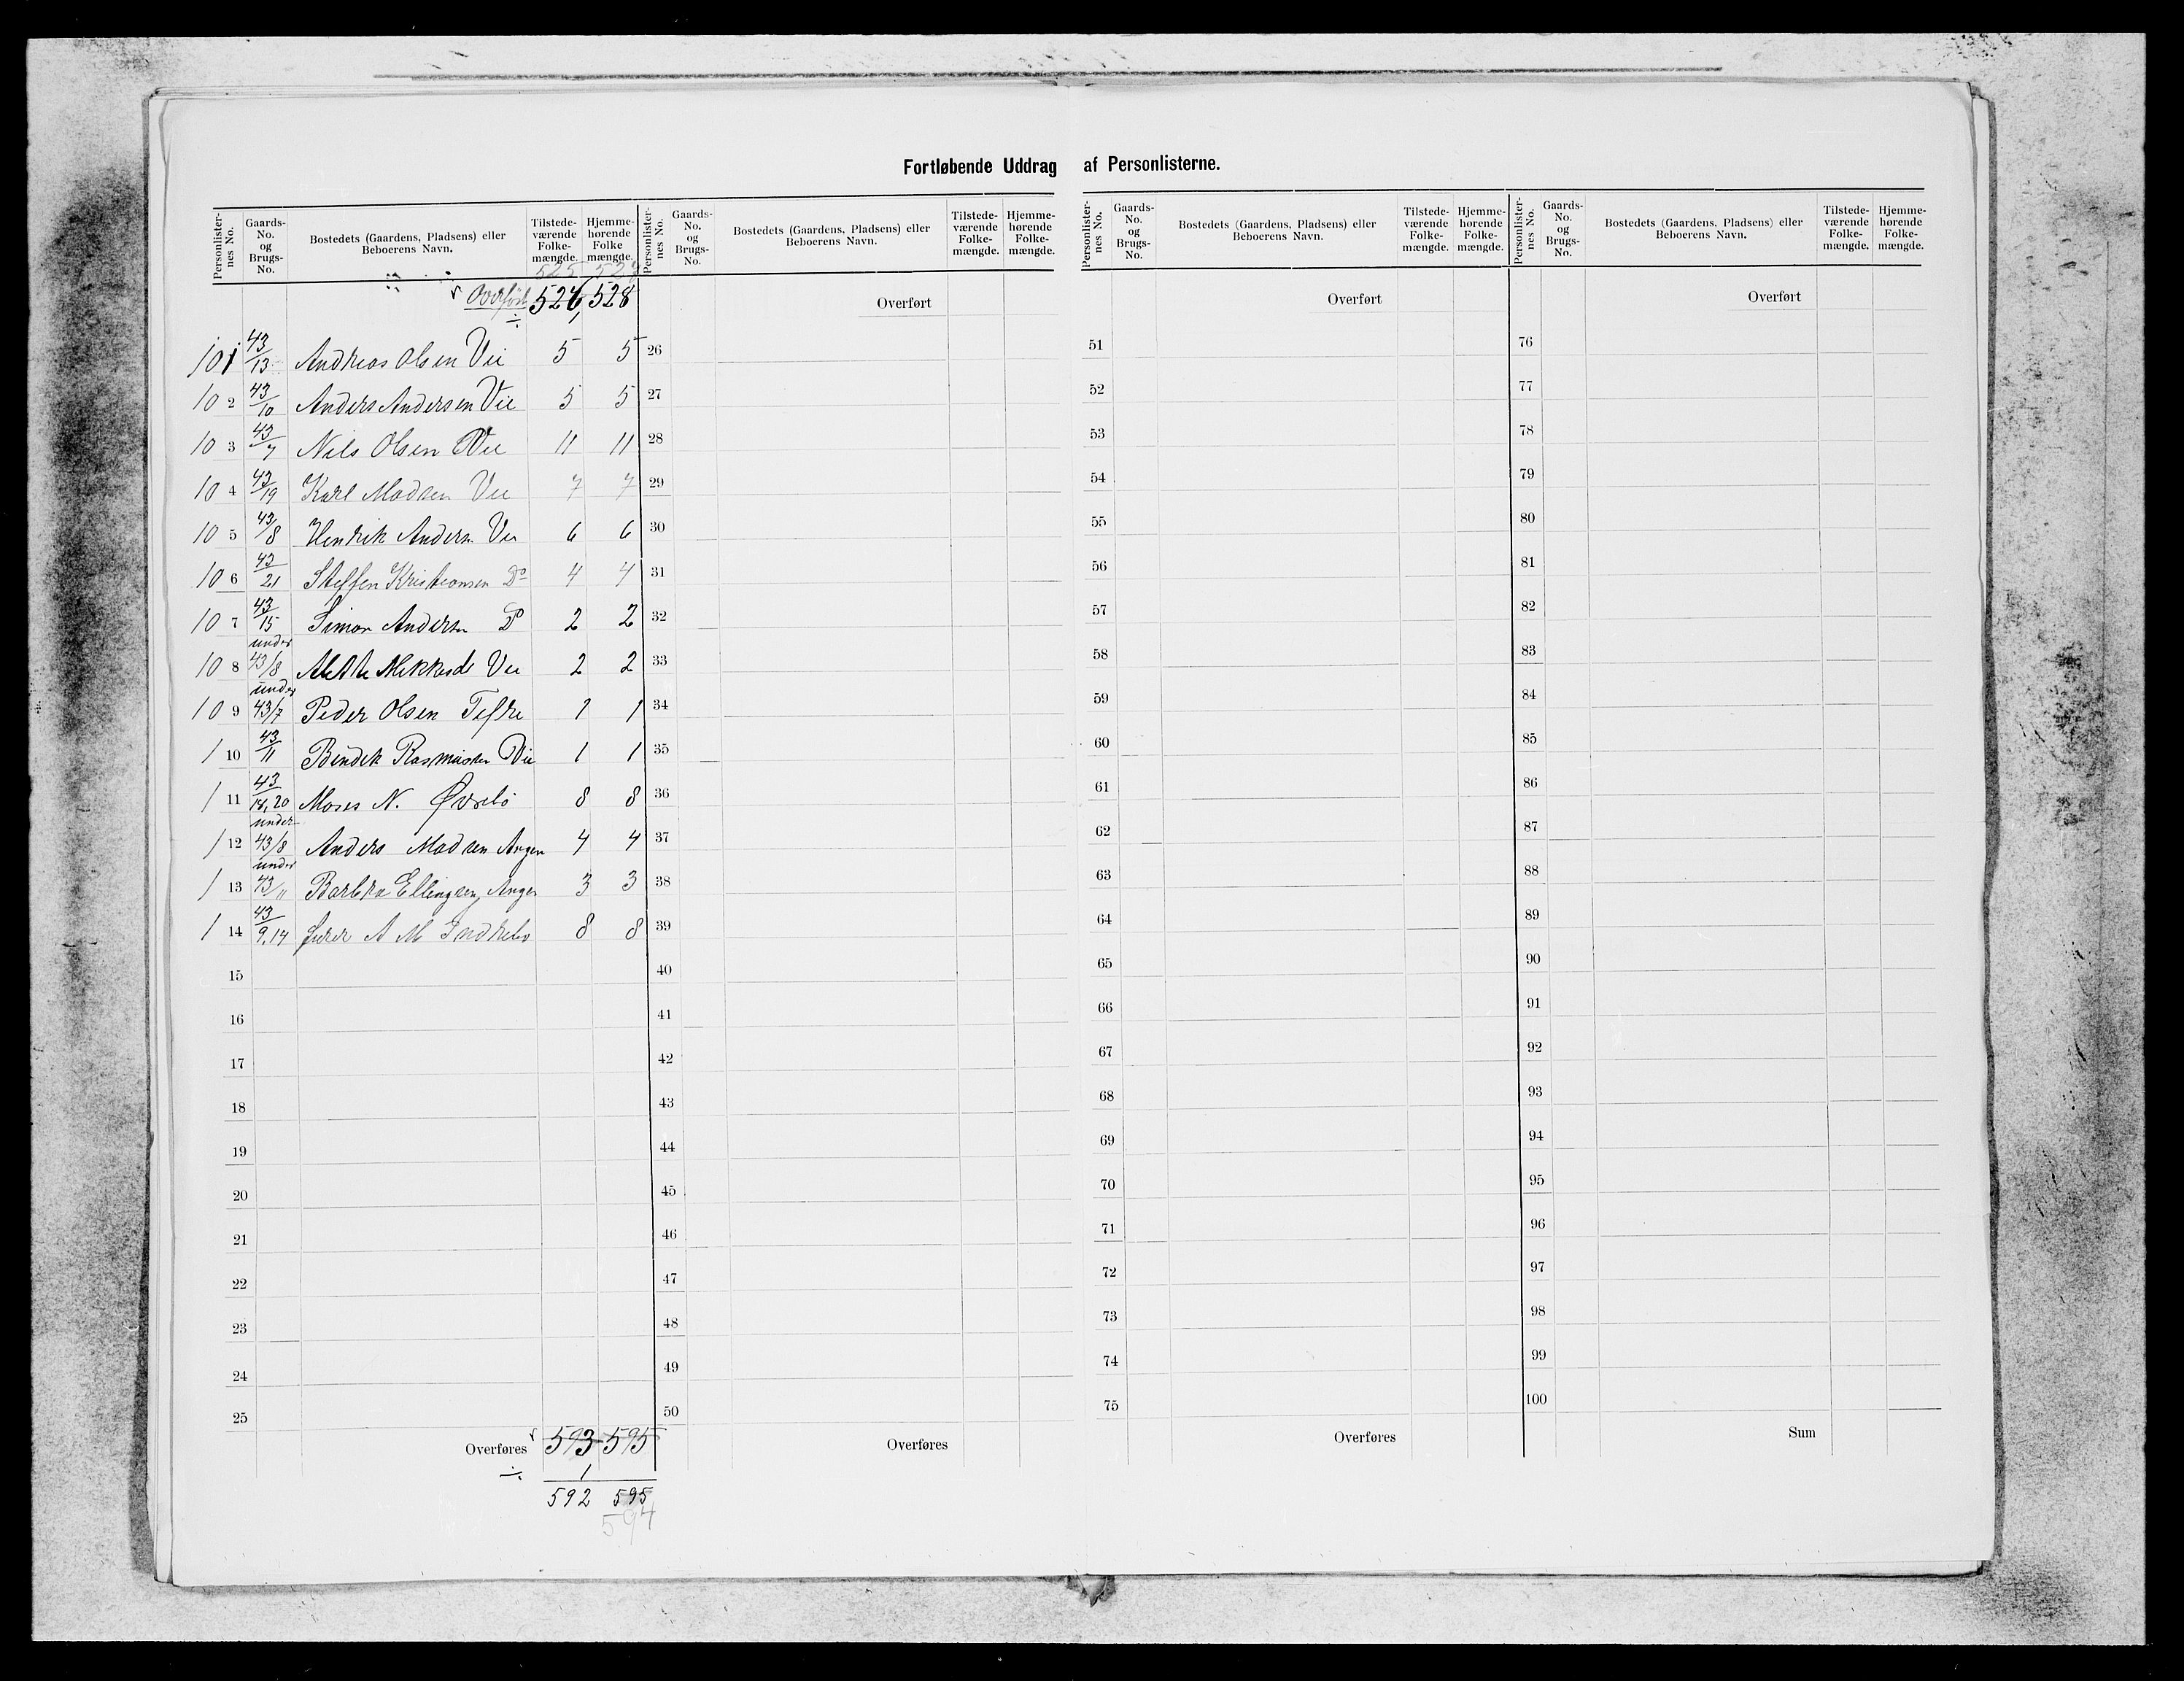 Fortløbende Uddrag af Personlisterne.
Personlister-nes No. Gaards-No. og Brugs-No. Bostedets (Gaardens, Pladsens) eller Beboerens Navn. Tilstede-værende Folke-mængde. Hjemme-hørende Folke mængde.
Overført 526 528
525 527
101 43/13 Andreas Olsen Vie 5 5
10 2 43/10 Anders Andersen Vie 5 5
10 3 43/7 Nils Olsen Vie 11 11
10 4 43/19 Karl Madsen Vie 7 7
10 5 43/8 Henrik Anders. Vie 6 6
10 6 43/21 Steffen Kristiansen Do 4 4
10 7 43/15 Simon Andersn Do 2 2
10 8 under 43/8 Mikkelsd Vie 2 2
10 9 under 43/7 Peder Olsen Tefre 1 1
1 10 43/11 Bendik Rasmussen Vie 1 1
1 11 43/18,20 Moses N. Øvrebö 8 8
1 12 under 43/8 Anders Madsen Angen 4 4
1 13 under 43/" Barbra Ellingsen, Angen 3 3
1 14 43/9,14 A M Indrebø 8 8
15
16
17
18
19
20
21
22
23
24
25
Overføres 593 595
÷ 1
592 595
594
Personlister-nes No. Gaards-No. og Brugs-No. Bostedets (Gaardens, Pladsens) eller Beboerens Navn. Tilstede-værende Folke-mængde. Hjemme-hørende Folke-mængde.
Overført
26
27
28
29
30
31
32
33
34
35
36
37
38
39
40
41
42
43
44
45
46
47
48
49
50
Overføres
Personlister-nes No. Gaards-No. og Brugs-No. Bostedets (Gaardens, Pladsens) eller Beboerens Navn. Tilstede-værende Folke-mængde. Hjemme-hørende Folke-mængde.
Overført
51
52
53
54
55
56
57
58
59
60
61
62
63
64
65
66
67
68
69
70
71
72
73
74
75
Overføres
Personlister-nes No. Gaards-No. og Brugs-No. Bostedets (Gaardens, Pladsens) eller Beboerens Navn. Tilstede-værende Folke-mængde. Hjemme-hørende Folke-mængde.
Overført
76
77
78
79
80
81
82
83
84
85
86
87
88
89
90
91
92
93
94
95
96
97
98
99
100
Sum